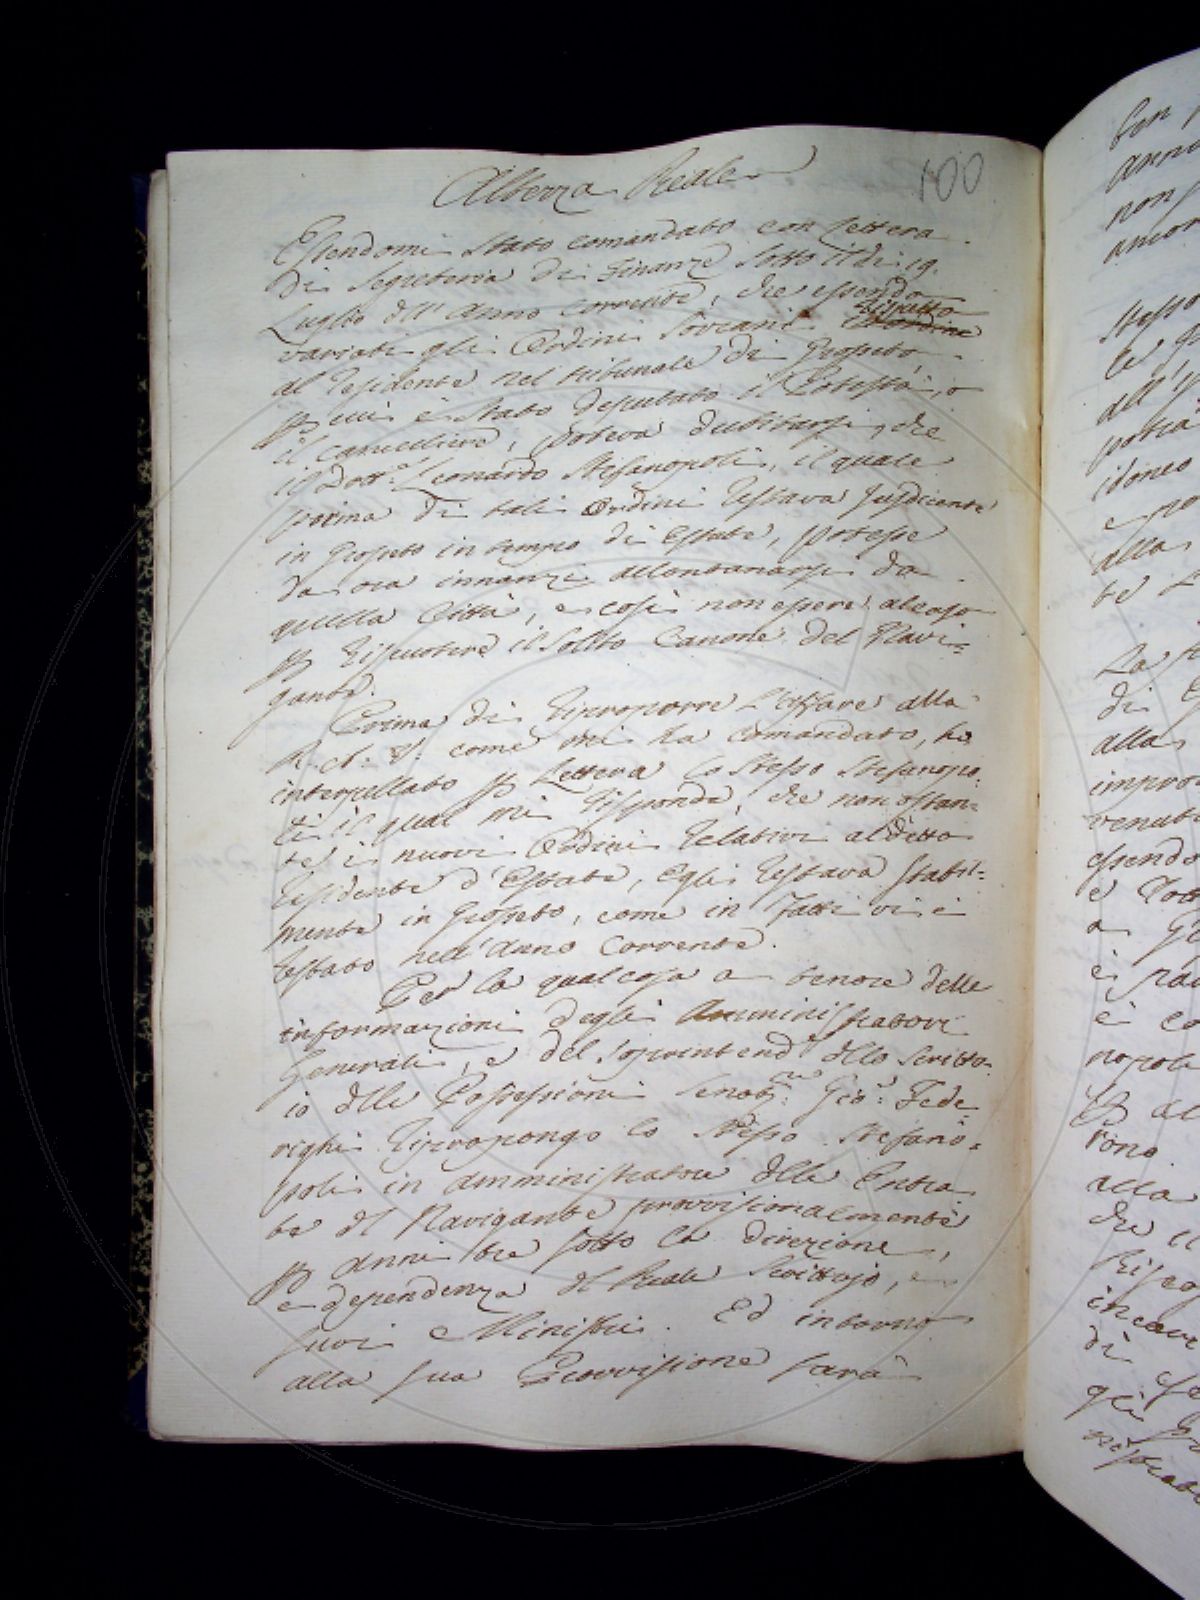 100
Altezza Reale
Essendomi stato comandato con Lettera
di Segreteria di Finanze sotto il dì 19.
Luglio dell' Anno corrente, che essendo
variati gli Ordini Sovrani rispetto
al Residente nel tribunale di Grosseto
p cui è stato deputato il Potestà, o
il Cancelliere, poteva dubitarsi, che
il Dott.e Leonardo Stefanopoli, il quale
prima di tali Ordini restava Jusdicente
in Grosseto in tempo di Estate, potesse
da ora innanzi allontanarsi da
quella Città, e così non essere al caso
p riscuotere il solito Canone del Navi=
gante.
Prima di riproporre l'affare alla
R. A. V. come mi ha comandato, ho
interpellato p Lettera lo stesso Stefanopo
li il qual mi risponde, che non ostan=
te i nuovi Ordini relativi al detto
residente d'Estate, Egli restava stabil=
mente in Grosseto, come in fatti vi è
restato nell'Anno corrente.
Per la qual cosa a tenore delle
informazioni degli Amministratori
Generali, e del Soprintend.e dello Scritto
io delle Possessioni Senat.re Gio: Fede
righi ripropongo lo stesso Stefano=
poli in amministratore delle Entra
te del Navigante provvisionalmente
p anni tre sotto la direzione,
e dependenza del Reale Scrittojo, e
suoi Ministri. Ed intorno
alla sua Provvisione sarà